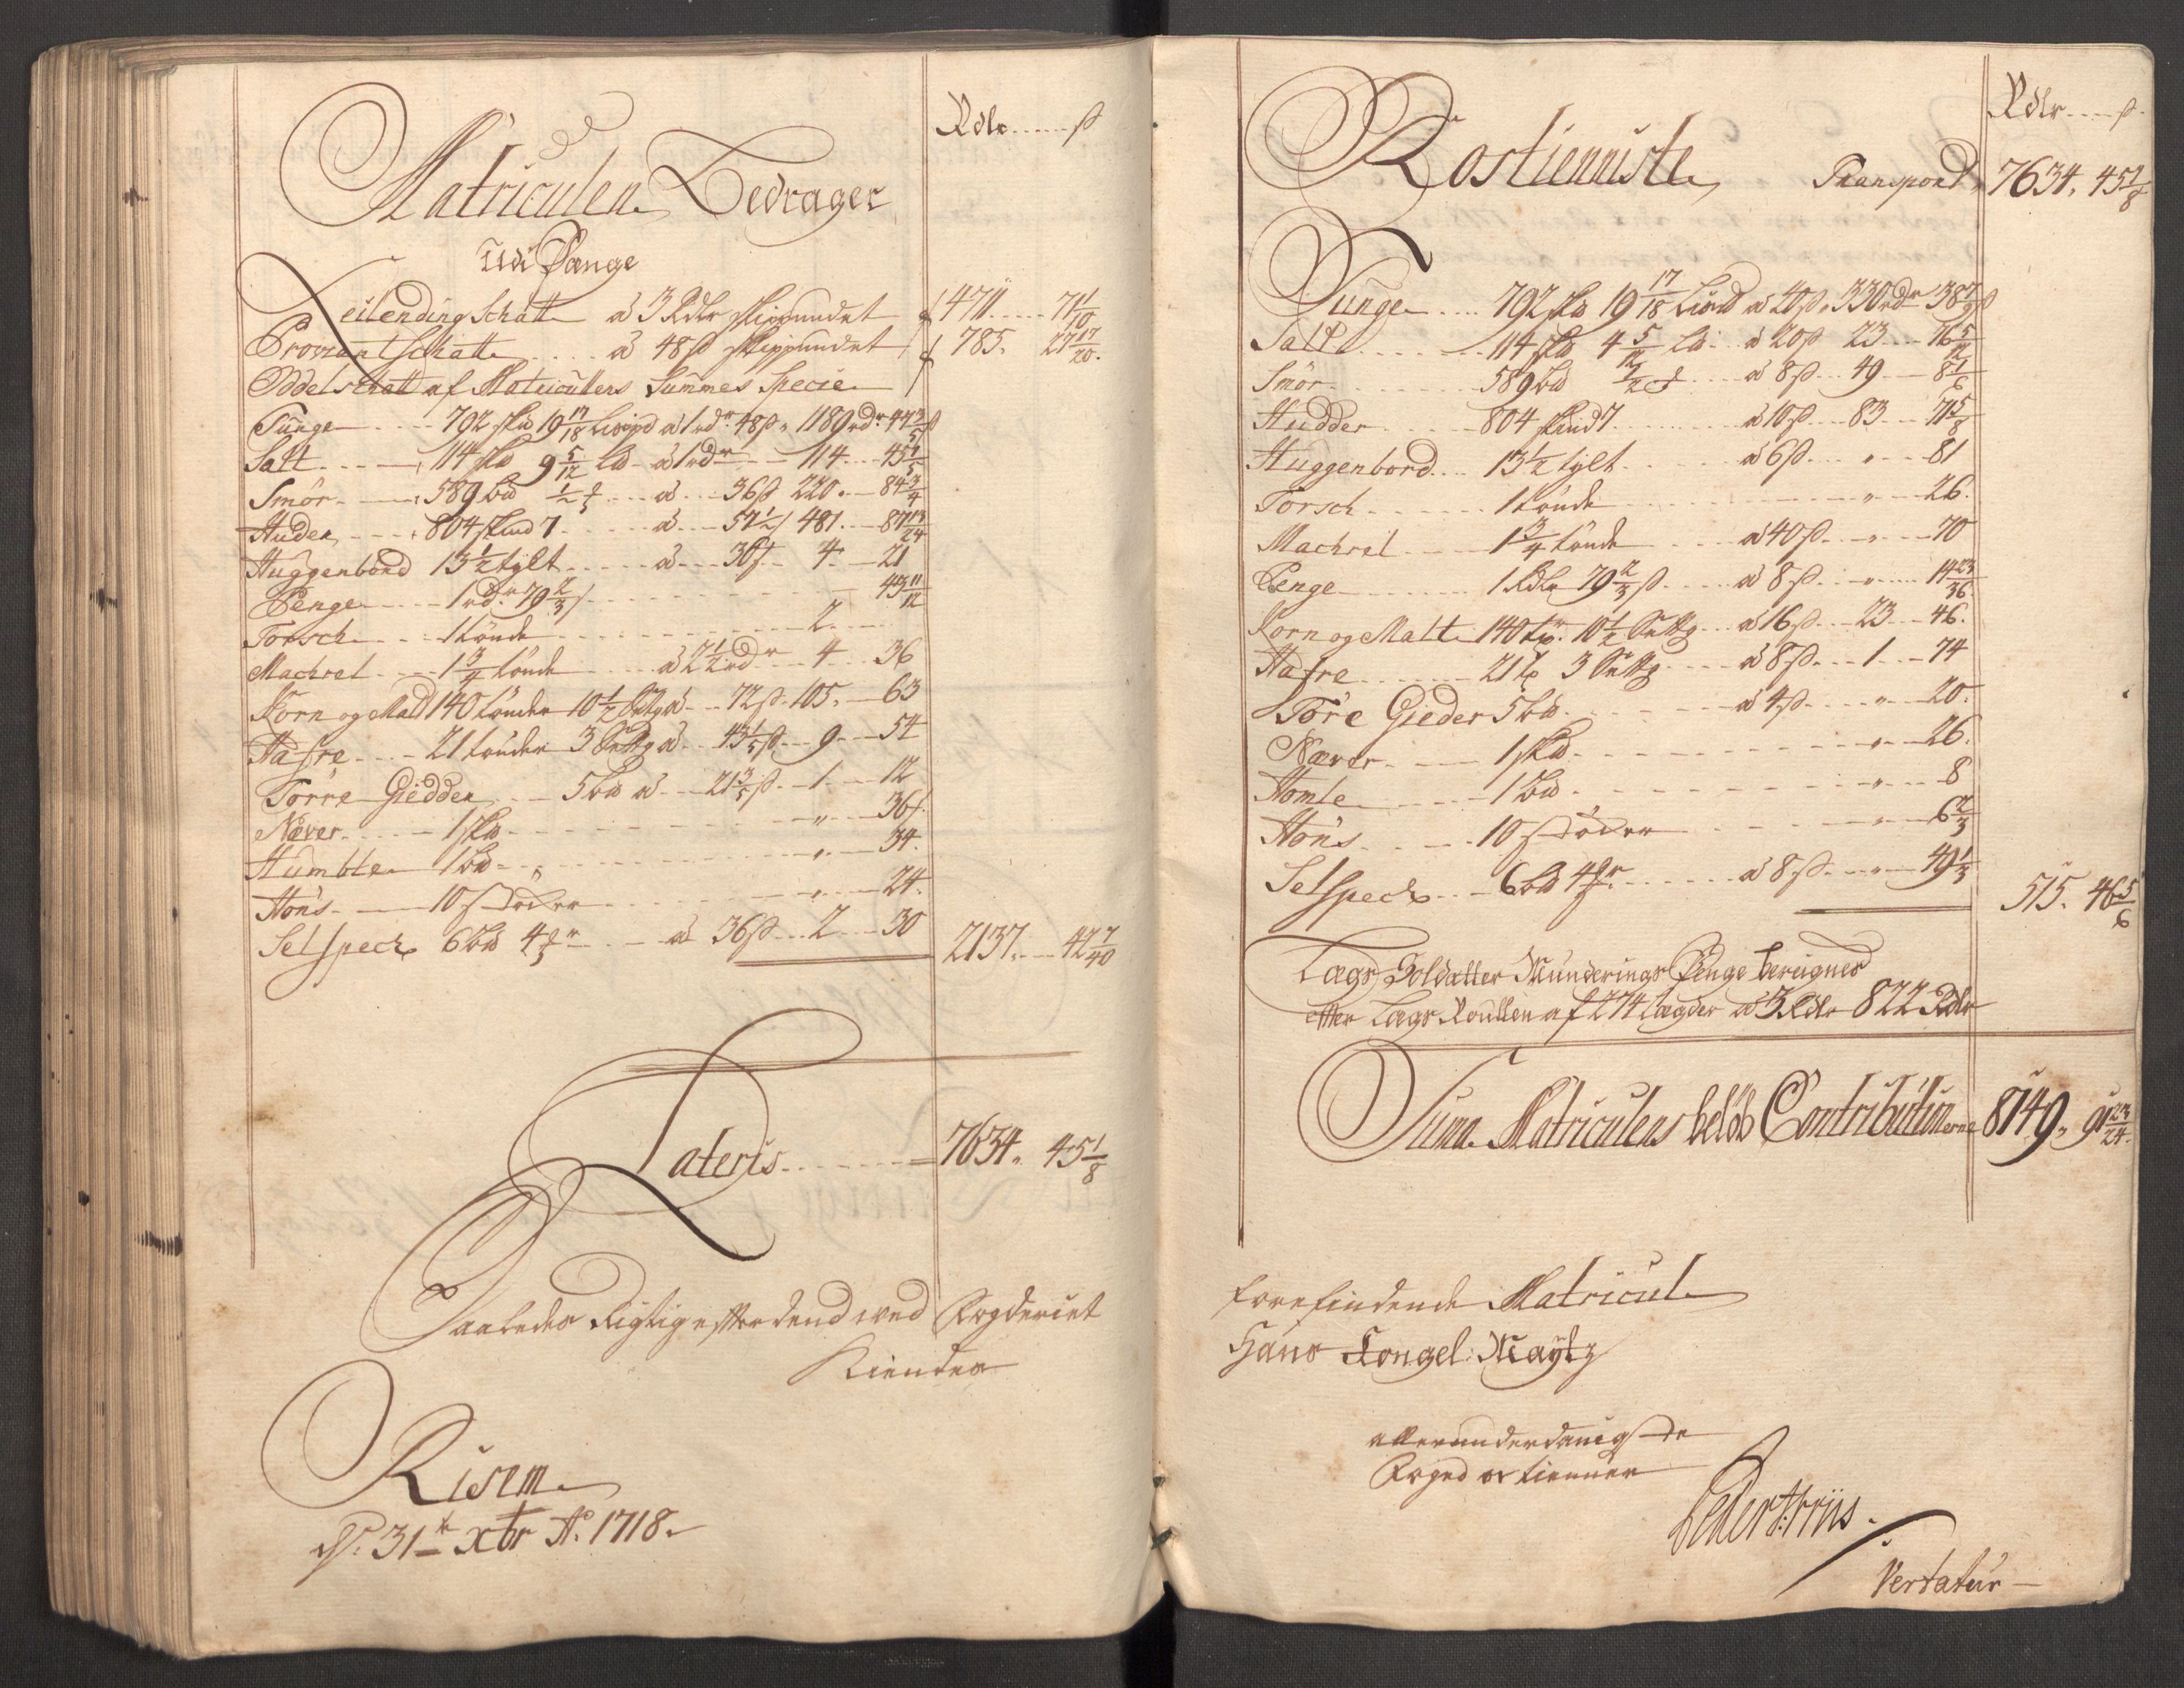 Rdlr ..... ß
Matriculen Bedrager
Udi Penge
Leilending Schatt à 3 Rdlr skippundet 4711 .... 71 1/10
Proviant Schatt .... à 48 ß skippundet 785. 27 17/20.
Oddelschatt af Matricullens Summes Specie
Tunge .... 792 skd 19 17/18 Lispd à 1 rdr 48 ß. 1189 rdr. 47 3/5 ß
Salt .... 114 skd 9 5/12 Ld à 1 rdr .... 114 .... 45 1/5
Smör .... 589 bd 1/2 .... à ... 36 ß 220. — 84 3/4
Huder .... 804 skind 7 .... à .... 57 1/2 481. — 87 13/24
Huggenbord 13 1/2 tylt .... à .... 30 ß .. 4. — 21
Penge .... 1 rdr. 79 2/3 ß .... 43 11/12
Torsch .... 1 tönde .... 2. ....
Machrel .... 1 3/4 tönde .... à 2 1/2 rdr .... 4 ... 36
Korn og Malt 140 tönder 10 1/2 Setg à .. 72 ß. 105. — 63
Hafre .... 21 tönder 3 Setg à .. 43 1/5 ß ... 9 .... 54
Törre Giedder .... 5 bd à .... 21 3/5 ß .. 1. .... 12
Næver .... 1 skd .... 36 ß.
Humble 1 bd .... 34.
Höns .... 10 stöcker .... 24.
Selspech 6 bd 4 .... à 36 ß .. 2 .... 30
2137. .... 42 7/40
Lateris .... 7634. 45 1/8
Saaledes Rigtig efter dend wed Fogderiet
Kiendes
Risem
d. 31te xbr Ao. 1718.
Rdlr .... ß.
Rostienniste
Transport 7634. 45 1/8
Tunge .... 792 skd 19 17/18 Lispd à 40 ß. 330 rdr 38 7/9 ß
Salt .... 114 skd 4 5/12 Ld. à 20 ß 23 .... 76 5/12
Smör .... 589 bd 1/2 .... à 8 ß .. 49 .... 8 1/6
Hudder .... 804 skind 7 .... à 10 ß .... 83 ... 71 5/8
Huggenbord .... 13 1/2 tylt .... à 6 ß .... 81
Torsch .... 1 tönde .... 26.
Machrel .... 1 3/4 tönde .... à 40 ß .... 70
Penge .... 1 Rdlr 79 2/3 ß .... à 8 ß .... 14 23/36
Korn og Malt 140 tr. 10 1/2 Settg .. à 16 ß .. 23 .... 46.
Hafre .... 21 t 3 Settg .... à 8 ß ... 1 .... 74
Töre Gieder 5 bd .... à 4 ß .... 20.
Næver .... 1 skd .... 26.
Homle .... 1 bd .... 8
Höns .... 10 stöcker .... 6 2/3
Selspech .... 6 bd 4 .... à 8 ß .... 49 1/3
515. 46 5/6
Lægs Soldatter Munderings Penge beregnes
efter Lægs Roullen af 274 Lægder à 3 Rdlr 822 Rdlr
Suma Matriculens belöb Contributionerne 8149. 91 23/24.
forefindende Matricul
Hans Kongel: Maytz
allerunderdanigste
Foged og tienner
Peder Friis.
Vertatur